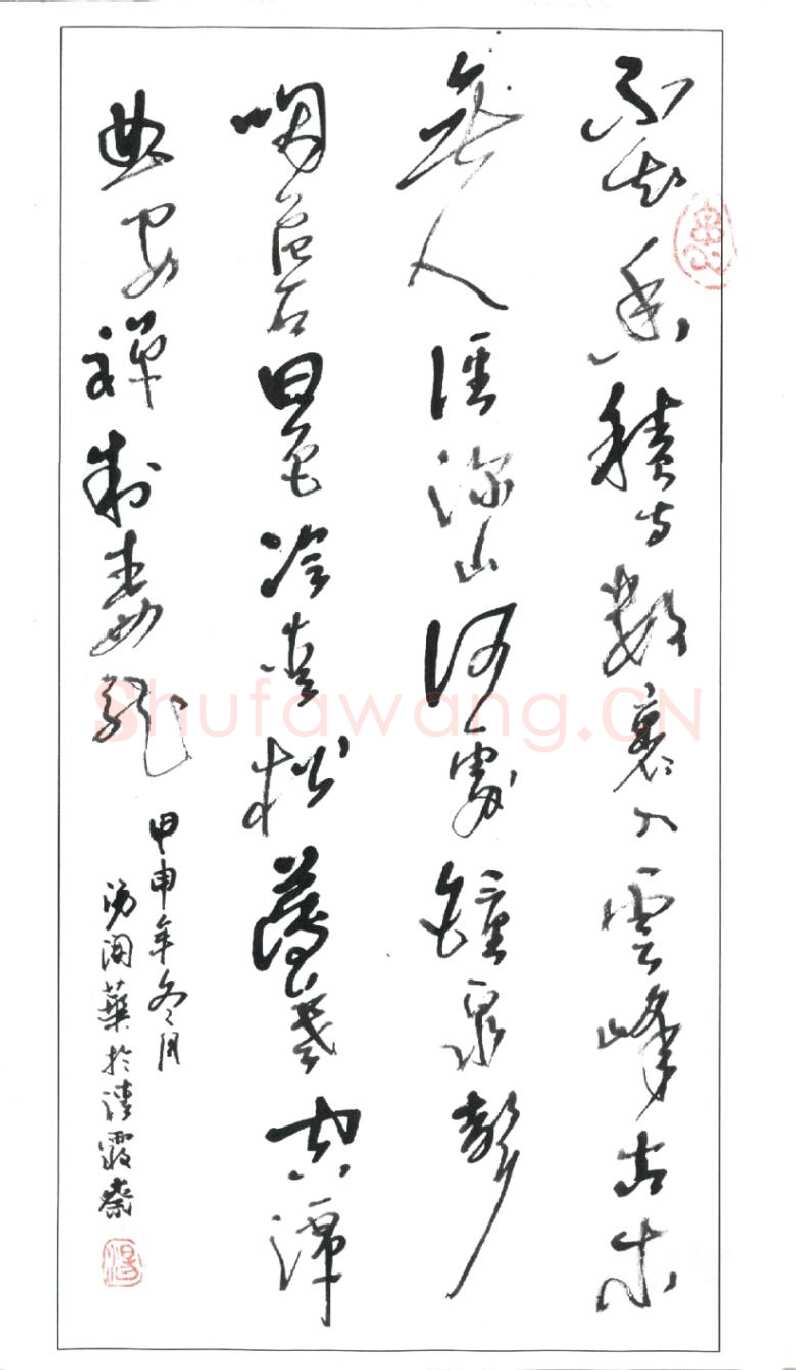 不知香積寺數里入雲峰古木
無人徑深山何處鐘泉聲
咽危石日色冷青松薄暮空潭
曲安禪制毒龍
甲申年冬月
湯闓葉於清霞齋
Shufawang.CN